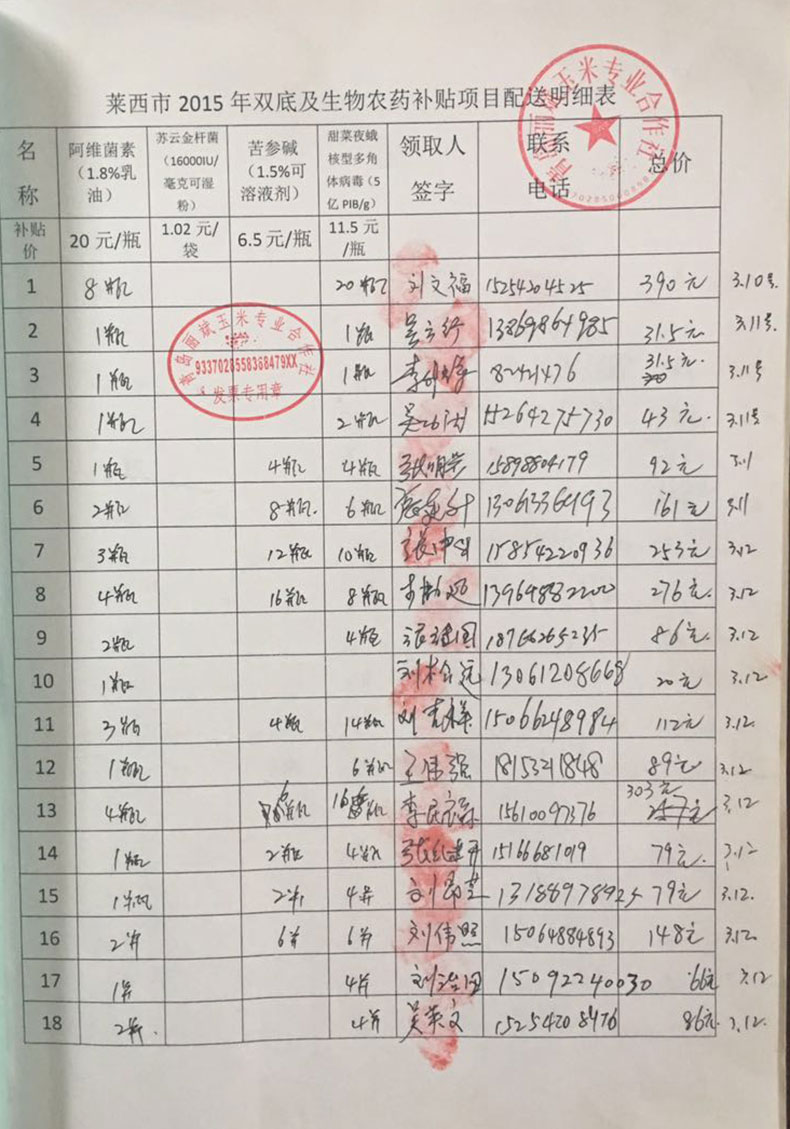 莱西市2015年双底及生物农药补贴项目配送明细表
名称 阿维菌素（1.8%乳油） 苏云金杆菌（16000IU/毫克可湿粉） 苦参碱（1.5%可溶液剂） 甜菜夜蛾核型多角体病毒（5亿PIB/g） 领取人签字 联系电话 总价
补贴价 20元/瓶 1.02元/袋 6.5元/瓶 11.5元/瓶
1 8瓶 20瓶 刘文福 15254204525 390元 3.10号
2 1瓶 1瓶 13869864985 31.5元 3.11号
3 1瓶 1瓶 82421476 31.5元 3.11号
4 1瓶 2瓶 15264275730 43元 3.11号
5 1瓶 4瓶 4瓶 张明 15898804179 92元 3.11
6 2瓶 8瓶 6瓶 161元 3.11
7 3瓶 12瓶 10瓶 15854220936 253元 3.12
8 4瓶 16瓶 8瓶 13969882200 276元 3.12
9 2瓶 4瓶 18766265235 86元 3.12
10 1瓶 刘 13061208668 20元 3.12
11 3瓶 4瓶 14瓶 刘吉祥 15066248984 112元 3.12
12 1瓶 6瓶 王伟强 18153211848 89元 3.12
13 4瓶 6瓶 16瓶 李民 15610097376 303元 3.12
14 1瓶 2瓶 4瓶 15166681019 79元 3.12
15 1瓶 2瓶 4瓶 刘 13188978925 79元 3.12
16 2瓶 6瓶 6瓶 刘伟照 15064884893 148元 3.12
17 1瓶 4瓶 刘治国 15092240030 66元 3.12
18 2瓶 4瓶 吴英文 15254208476 86元 3.12
青岛丽斌玉米专业合作社
青岛丽斌玉米专业合作社
9337028558368479XX
发票专用章